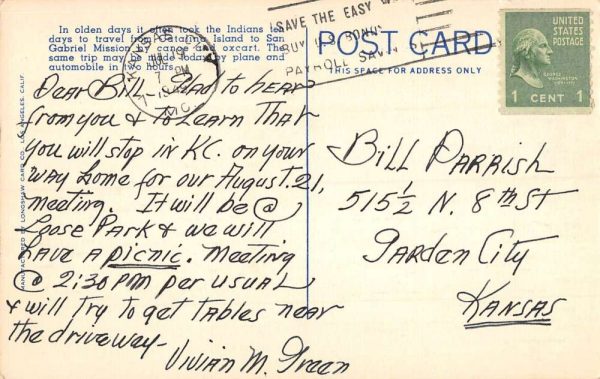 In olden days it often took the Indians ten
days to travel from Catalina Island to San
Gabriel Mission by canoe and oxcart. The
same trip may be made today by plane and
automobile in two hours.
MANUFACTURED BY LONGSHAW CARD CO., LOS ANGELES, CALIF.
SAVE THE EASY
BUY U.S. BONDS
PAYROLL SAVINGS
POST CARD
THIS SPACE FOR ADDRESS ONLY
UNITED
STATES
POSTAGE
GEORGE
WASHINGTON
1 CENT 1
MO.
Dear Bill - Glad to hear
from you & to learn that
you will stop in KC. on your
way home for our August. 21,
meeting. It will be @
Loose Park & we will
have a picnic. Meeting
@ 2:30 PM per usual
& will try to get tables near
the driveway-
Vivian M. Green
Bill Parrish
515½ N. 8th St
Garden City
Kansas